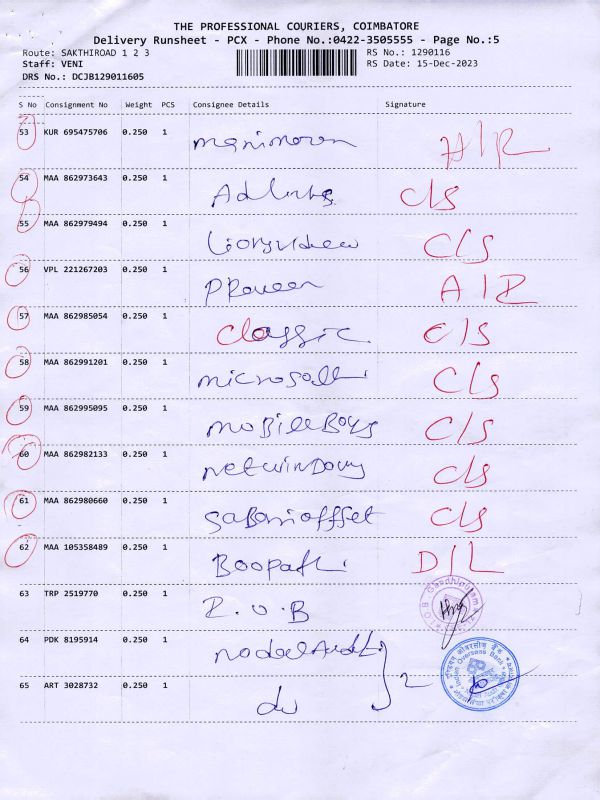 THE PROFESSIONAL COURIERS, COIMBATORE
Delivery Runsheet - PCX - Phone No.:0422-3505555 - Page No.:5
Route: SAKTHIROAD 1 2 3 RS No.: 1290116
Staff: VENI RS Date: 15-Dec-2023
DRS No.: DCJB129011605
S No Consignment No Weight PCS Consignee Details Signature
53 KUR 695475706 0.250 1 manimaran
54 MAA 862973643 0.250 1 C/S
55 MAA 862979494 0.250 1 C/S
56 VPL 221267203 0.250 1 PRaveen A/R
57 MAA 862985054 0.250 1 classic C/S
58 MAA 862991201 0.250 1 C/S
59 MAA 862995095 0.250 1 moBileBoys C/S
60 MAA 862982133 0.250 1 C/S
61 MAA 862980660 0.250 1 C/S
62 MAA 105358489 0.250 1 Boopathi D/L
63 TRP 2519770 0.250 1
64 PDK 8195914 0.250 1
65 ART 3028732 0.250 1 2
Indian Overseas Bank